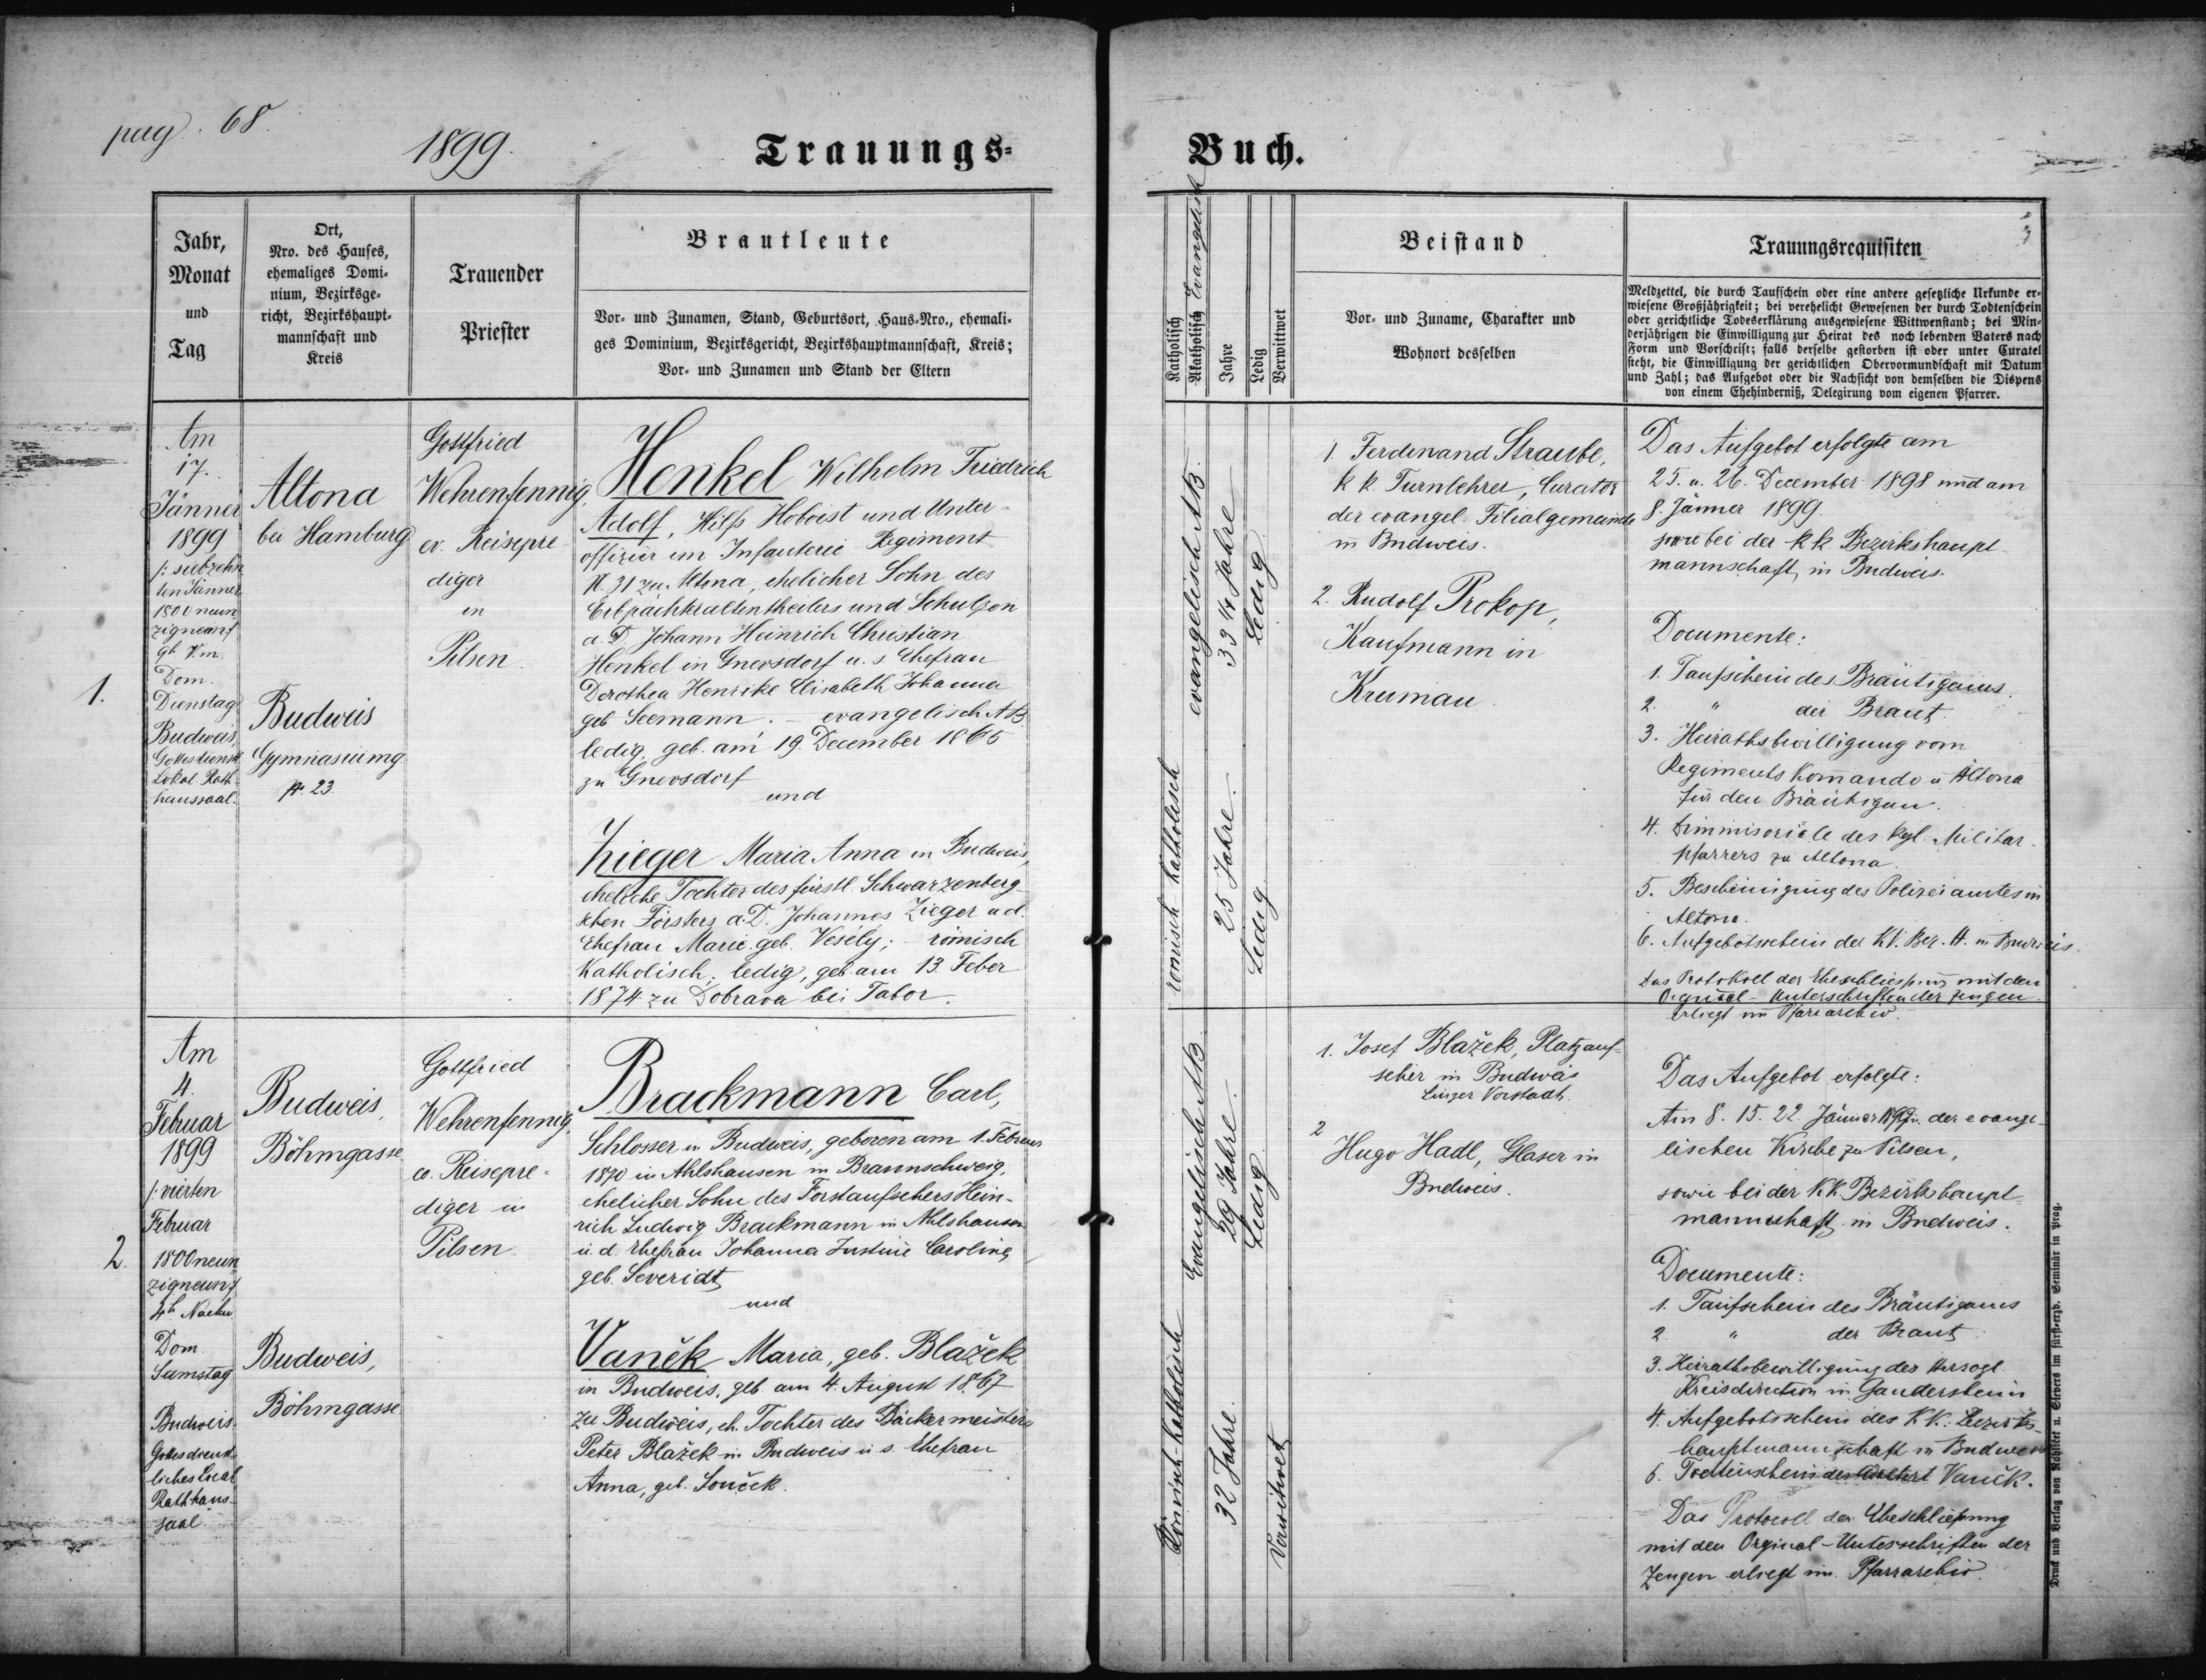 pag. 68.
1899.
Trauungs=
Buch.
Jahr,
Monat
und
Tag
Ort,
Nro. des Hauses,
ehemaliges Domi-
nium, Bezirksge-
richt, Bezirkshaupt-
mannschaft und
Kreis
Trauender
Priester
Brautleute
Vor- und Zunamen, Stand, Geburtsort, Haus-Nro., ehemali-
ges Dominium, Bezirksgericht, Bezirkshauptmannschaft, Kreis;
Vor- und Zunamen und Stand der Eltern
Katholisch
Akatholisch Evangelisch
Jahre
Ledig
Verwittwet
Beistand
Vor- und Zuname, Charakter und
Wohnort desselben
Trauungsrequisiten
Meldzettel, die durch Taufschein oder eine andere gesetzliche Urkunde er-
wiesene Großjährigkeit; bei verehelicht Gewesenen der durch Todtenschein
oder gerichtliche Todeserklärung ausgewiesene Wittwenstand; bei Min-
derjährigen die Einwilligung zur Heirat des noch lebenden Vaters nach
Form und Vorschrift; falls derselbe gestorben ist oder unter Curatel
steht, die Einwilligung der gerichtlichen Obervormundschaft mit Datum
und Zahl; das Aufgebot oder die Nachsicht von demselben die Dispens
von einem Ehehinderniß, Delegirung vom eigenen Pfarrer.
1.
Am
17.
Jänner
1899
/: siebzehn
ten Jänner
1800 neun
zigneun :/
9h Vm.
Dom.
Dienstag
Budweis,
Gottesdienstl.
Lokal Rath-
haussaal.
Altona
bei Hamburg
Budweis
Gymnasiumg
N. 23
Gottfried
Wehrenfennig,
ev. Reisepre
diger
in
Pilsen.
Henkel Wilhelm Friedrich
Adolf, Hilfs Hoboist und Unter-
offizier im Infanterie Regiment
N. 31 zu Altona, ehelicher Sohn des
Erbpächteraltentheilers und Schulzen
a. D. Johann Heinrich Christian
Henkel in Gnevsdorf u. s. Ehefrau
Dorothea Henrike Elisabeth Johanna
geb Seemann. – evangelisch AB.
ledig, geb. am 19. December 1865
zu Gnevsdorf
und
Zieger Maria Anna in Budweis,
eheliche Tochter des fürstl. Schwarzenberg-
schen Försters a.D. Johannes Zieger u d.
Ehefrau Marie geb. Vesély; – römisch
Katholisch; ledig, geb. am 13. Feber
1874 zu Dobrava bei Tabor.
evangelisch AB.
33 1/4 Jahre
Ledig
römisch katholisch
25 Jahre.
Ledig
1. Ferdinand Straube,
k k. Turnlehrer, Curator
der evangel. Filialgemeinde
in Budweis.
2. Rudolf Prokop,
Kaufmann in
Krumau.
Das Aufgebot erfolgte am
25. u. 26. December 1898 und am
8. Jänner 1899.
sowie bei der k k. Bezirkshaupt-
mannschaft in Budweis.
Documente:
1. Taufschein des Bräutigams.
2. " der Braut.
3. Heirathsbewilligung vom
Regiments Komando in Altona
für den Bräutigam.
4. Dimmisoriale des kgl. Militar-
pfarrers zu Altona.
5. Bescheinigung des Polizeiamtes in
Altona.
6. Aufgebotsschein der KK. Bez. H. in Budweis.
Das Protokoll der Eheschliessung mit den
Original-Unterschriften der Zeugen
erliegt im Pfarrarchiv.
2.
Am
4.
Februar
1899
/: vierten
Februar
1800 neun
zigneun :/
4h Nachm
Dom.
Samstag
Budweis.
Gottesdienst-
liches Local
Rathhaus-
saal.
Budweis,
Böhmgasse
Budweis,
Böhmgasse
Gottfried
Wehrenfennig,
ev. Reisepre-
diger in
Pilsen.
Brackmann Carl,
Schlosser in Budweis, geboren am 1. Februar
1870 in Ahlshausen in Braunschweig,
ehelicher Sohn des Forstaufsehers Hein-
rich Ludwig Brackmann in Ahlshausen
u. d. Ehefrau Johanna Justine Caroline,
geb. Severidt
und
Vaněk Maria, geb. Blažek
in Budweis, geb am 4. August 1867
zu Budweis, eh. Tochter des Bäckermeisters
Peter Blažek in Budweis u s. Ehefrau
Anna, geb. Souček.
Evangelisch AB.
29 Jahre.
Ledig
Römisch-katholisch
32 Jahre.
Verwitwet
1. Josef Blažek, Platzauf-
seher in Budweis
Linzer Vorstadt.
2
Hugo Hadl, Glaser in
Budweis.
Das Aufgebot erfolgte:
Am 8. 15. 22 Jänner 1899 in der evange-
lischen Kirche zu Pilsen,
sowie bei der KK. Bezirkshaupt-
mannschaft in Budweis.
Documente:
1. Taufschein des Bräutigams
2. " der Braut
3. Heirathsbewilligung der Herzogl.
Kreisdirection in Gandersheim
4. Aufgebotsschein des KK. Bezirks-
hauptmannschaft in Budweis
6. Todtenschein des Vaněk.
Das Protocoll der Eheschließung
mit den Orginal-Unterschriften der
Zeugen erliegt im Pfarrarchiv.
Druck und Verlag von Rohliček u. Sievers im fürsterzb. Seminär in Prag.